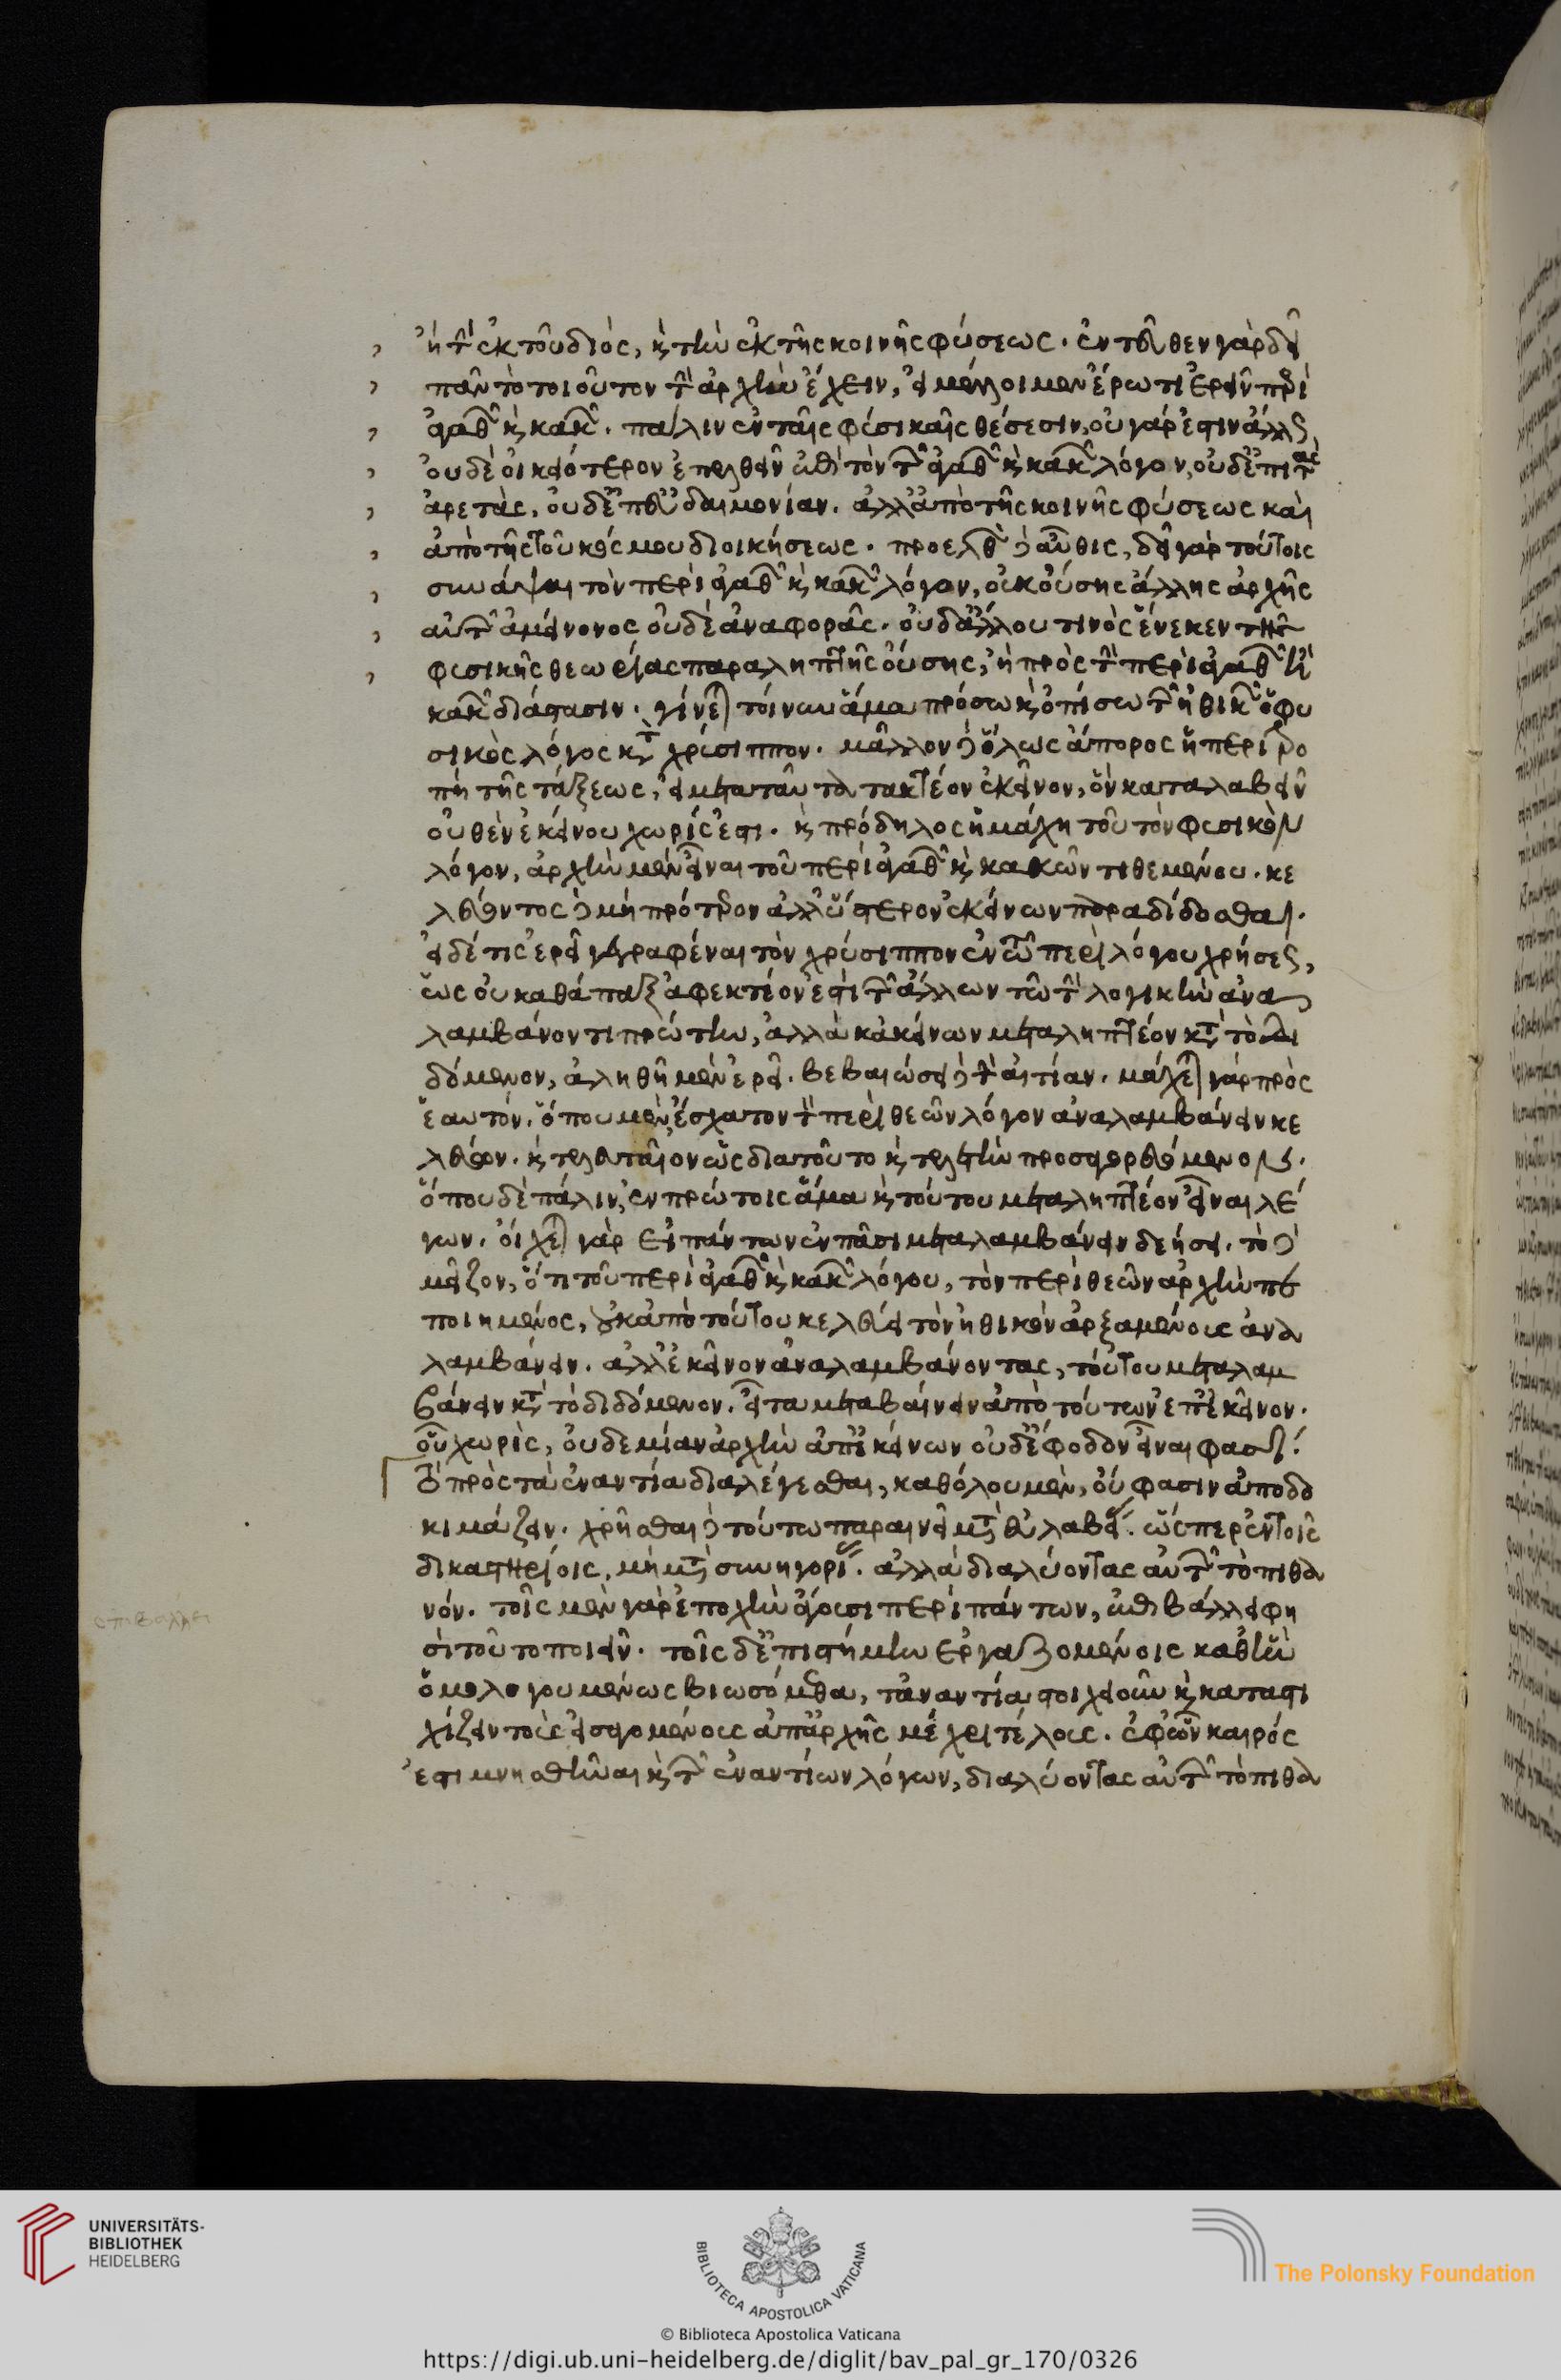 ἢ τὴν ἐκ τοῦ διὸς, καὶ τὴν ἐκ τῆς κοινῆς φύσεως. ἐντεῦθεν γὰρ δεῖ
πᾶν τὸ τοιοῦτον τὴν ἀρχὴν ἔχειν, εἰ μέλλοιμεν ἔρωτι ἐρεῖν περὶ
ἀγαθῶν καὶ κακῶν. πάλιν ἐν ταῖς φυσικαῖς θέσεσιν, οὐ γάρ ἐστιν ἄλλως
οὐδὲ οἰκειότερον ἐπελθεῖν ἐπὶ τὸν τῶν ἀγαθῶν καὶ κακῶν λόγον, οὐδ' ἐπὶ τὰς
ἀρετὰς, οὐδ' ἐπ' εὐδαιμονίαν. ἀλλ' ἀπὸ τῆς κοινῆς φύσεως καὶ
ἀπὸ τῆς τοῦ κόσμου διοικήσεως. προελθὼν δὲ αὖθις, δεῖ γὰρ τούτοις
συνάψαι τὸν περὶ ἀγαθῶν καὶ κακῶν λόγον, οὐκ οὔσης ἄλλης ἀρχῆς
αὐτῶν ἀμείνονος οὐδὲ ἀναφορᾶς. οὐδ' ἄλλου τινὸς ἕνεκεν τῆς
φυσικῆς θεωρίας παραληπτῆς οὔσης, ἢ πρὸς τὴν περὶ ἀγαθῶν ἢ
κακῶν διάστασιν. γίνεται τοίνυν ἅμα πρόσω καὶ ὀπίσω τῶν ἠθικῶν ὁ φυ
σικὸς λόγος κατὰ χρύσιππον. μᾶλλον δὲ ὅλως ἄπορος ἡ περιτρο
πὴ τῆς τάξεως, εἰ μετὰ ταῦτα τακτέον ἐκεῖνον, ὃν καταλαβεῖν
οὐθὲν ἐκείνου χωρίς ἐστι. καὶ πρόδηλος ἡ μάχη τοῦ τὸν φυσικὸν
λόγον, ἀρχὴν μὲν εἶναι τοῦ περὶ ἀγαθῶν καὶ κακῶν τιθεμένου. κε
λεύοντος δὲ μὴ πρότερον ἀλλ' ὕστερον ἐκείνων παραδίδοσθαι.
εἰ δέ τις ἐρεῖ γεγραφέναι τὸν χρύσιππον ἐν τῷ περὶ λόγου χρήσεως,
ὡς οὐ καθάπαξ ἀφεκτέον ἐστὶ τῶν ἄλλων τῷ τὴν λογικὴν ἀνα
λαμβάνοντι πρώτην, ἀλλὰ κἀκείνων μεταληπτέον κατὰ τὸ δι
δόμενον, ἀληθῆ μὲν ἐρεῖ. βεβαιώσει δὲ τὴν αἰτίαν. μάχεται γὰρ πρὸς
ἑαυτόν. ὅπου μὲν, ἔσχατον τὸν περὶ θεῶν λόγον ἀναλαμβάνειν κε
λεύων. καὶ τελευταῖον ὡς διὰ τοῦτο καὶ τελετὴν προσαγορευόμενον.
ὅπου δὲ πάλιν, ἐν πρώτοις ἅμα καὶ τούτου μεταληπτέον εἶναι λέ
γων. οἴχεται γὰρ εἰ πάντων ἐν πᾶσι μεταλαμβάνειν δεήσει. τὸ δὲ
μεῖζον, ὅτι τοῦ περὶ ἀγαθῶν καὶ κακῶν λόγου, τὸν περὶ θεῶν ἀρχὴν πε
ποιημένος, οὐκ ἀπὸ τούτου κελεύει τὸν ἠθικὸν ἀρξαμένους ἀνα
λαμβάνειν. ἀλλ' ἐκεῖνον ἀναλαμβάνοντας, τούτου μεταλαμ
βάνειν κατὰ τὸ διδόμενον. εἶτα μεταβαίνειν ἀπὸ τούτων ἐπ' ἐκεῖνον.
οὗ χωρὶς, οὐδεμίαν ἀρχὴν ἀπ' ἐκείνων οὐδ' ἔφοδον εἶναι φασί.
Τὸ πρὸς τὰ ἐναντία διαλέγεσθαι, καθόλου μὲν, οὔ φασιν ἀποδο
κιμάζειν. χρῆσθαι δὲ τούτῳ παραινεῖ μετὰ εὐλαβείας. ὥσπερ ἐν τοῖς
δικαστηρίοις, μὴ μετὰ συνηγορίας. ἀλλὰ διαλύοντας αὐτῶν τὸ πιθα
νόν. τοῖς μὲν γὰρ ἐποχὴν ἄγουσι περὶ πάντων, ἐπιβάλλει φη
σὶ τοῦτο ποιεῖν. τοῖς δ' ἐπιστήμην ἐργαζομένοις καθ' ἣν
ὁμολογουμένως βιωσόμεθα, τἀναντία στοιχειοῦν καὶ καταστι
χίζειν τοὺς εἰσαγομένους ἀπ' ἀρχῆς μέχρι τέλους. ἐφ' ὧν καιρός
ἐστι μνησθῆναι καὶ τῶν ἐναντίων λόγων, διαλύοντας αὐτῶν τὸ πιθα
UNIVERSITÄTS-
BIBLIOTHEK
HEIDELBERG
BIBLIOTECA APOSTOLICA VATICANA
The Polonsky Foundation
© Biblioteca Apostolica Vaticana
https://digi.ub.uni-heidelberg.de/diglit/bav_pal_gr_170/0326